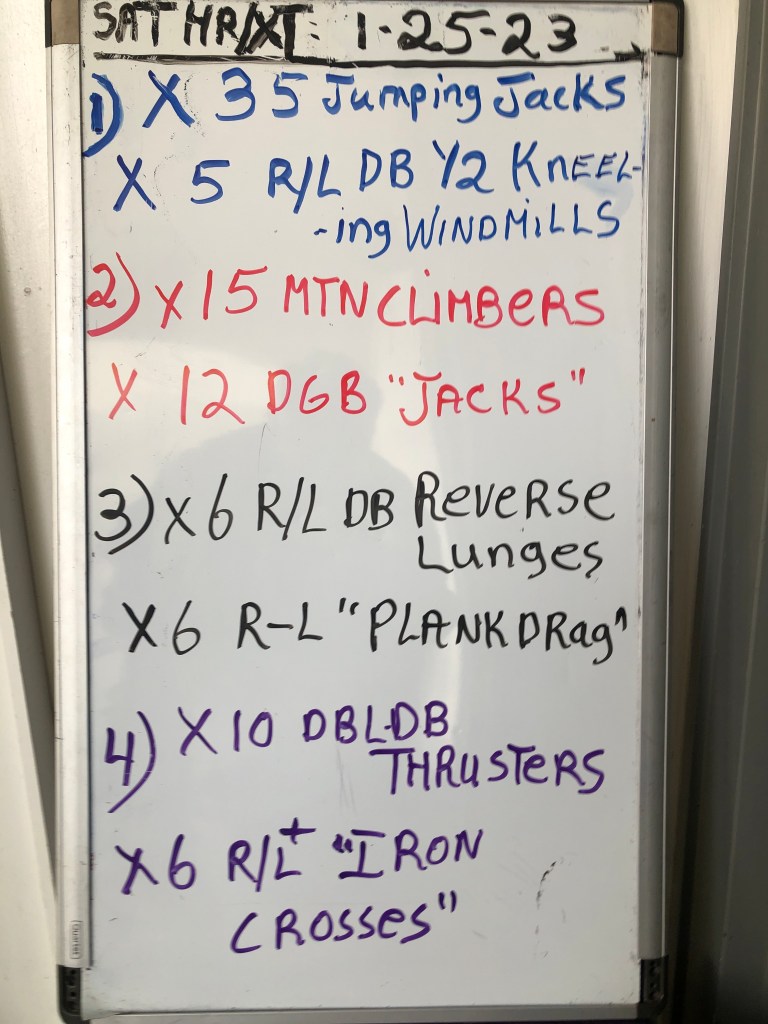 SAT HR/XT: 1-25-23
1) X 35 Jumping Jacks
X 5 R/L DB 1/2 KNEEL-
-ing WINDMILLS
2) X 15 MTN CLIMBERS
X 12 DGB "JACKS"
3) X 6 R/L DB REVERSE
Lunges
X 6 R-L "PLANK DRag"
4) X 10 DBL-DB
THRUSTERS
X 6 R/L+ "IRON
CROSSES"
Quartet